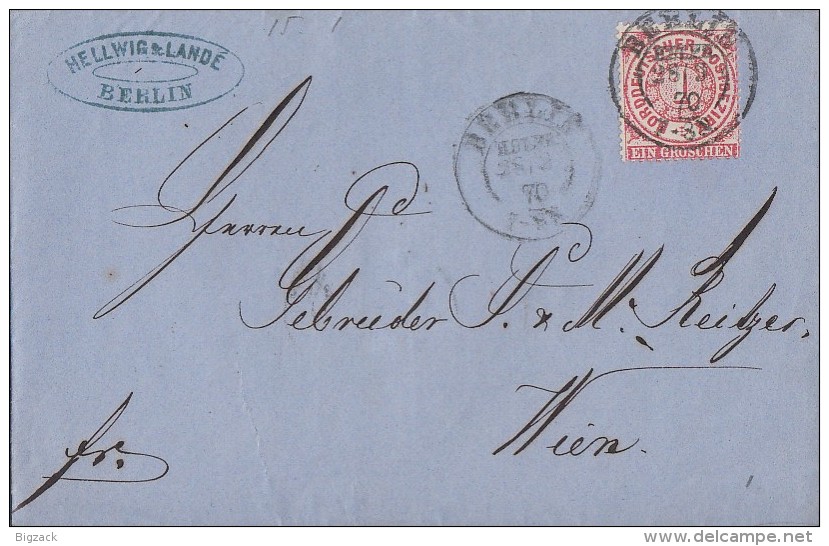 15 1
HELLWIG & LANDÉ
BERLIN
BERLIN
28 3
70
NORDDEUTSCHER POSTBEZIRK
EIN GROSCHEN
BERLIN
28 3
70
Herren
Gebrüder S. & M. Reitzes.
Wien.
fr.
Bigzack
www.delcampe.net